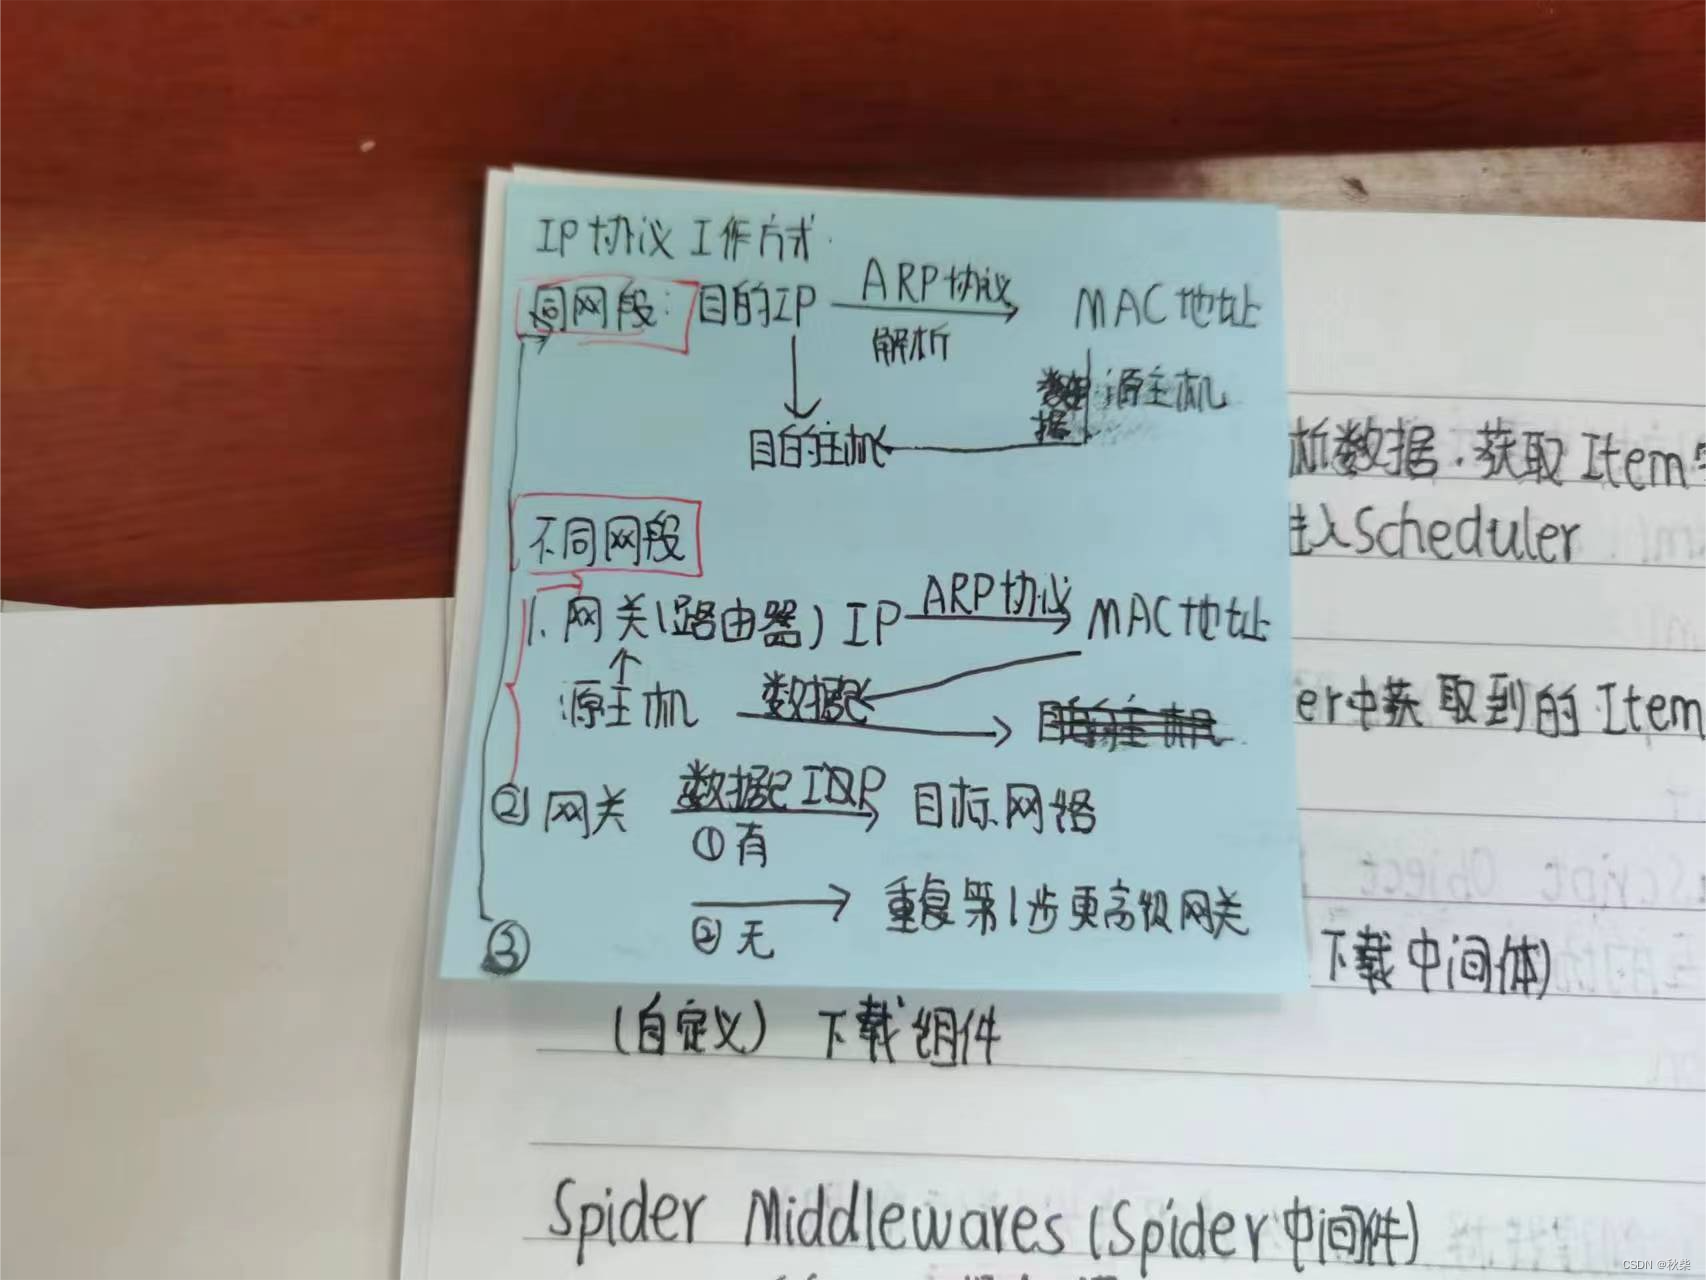 IP协议工作方式
同网段: 目的IP ARP协议 MAC地址
解析
数据 源主机
目的主机
不同网段
1. 网关(路由器) IP ARP协议 MAC地址
源主机 数据包
② 网关 数据包 IP 目标网络
①有
重复第1步更高级网关
②无
③
析数据.获取Item
注入Scheduler
er中获取到的Item
下载中间体)
(自定义) 下载组件
Spider Middlewares(Spider中间件)
CSDN @秋柴